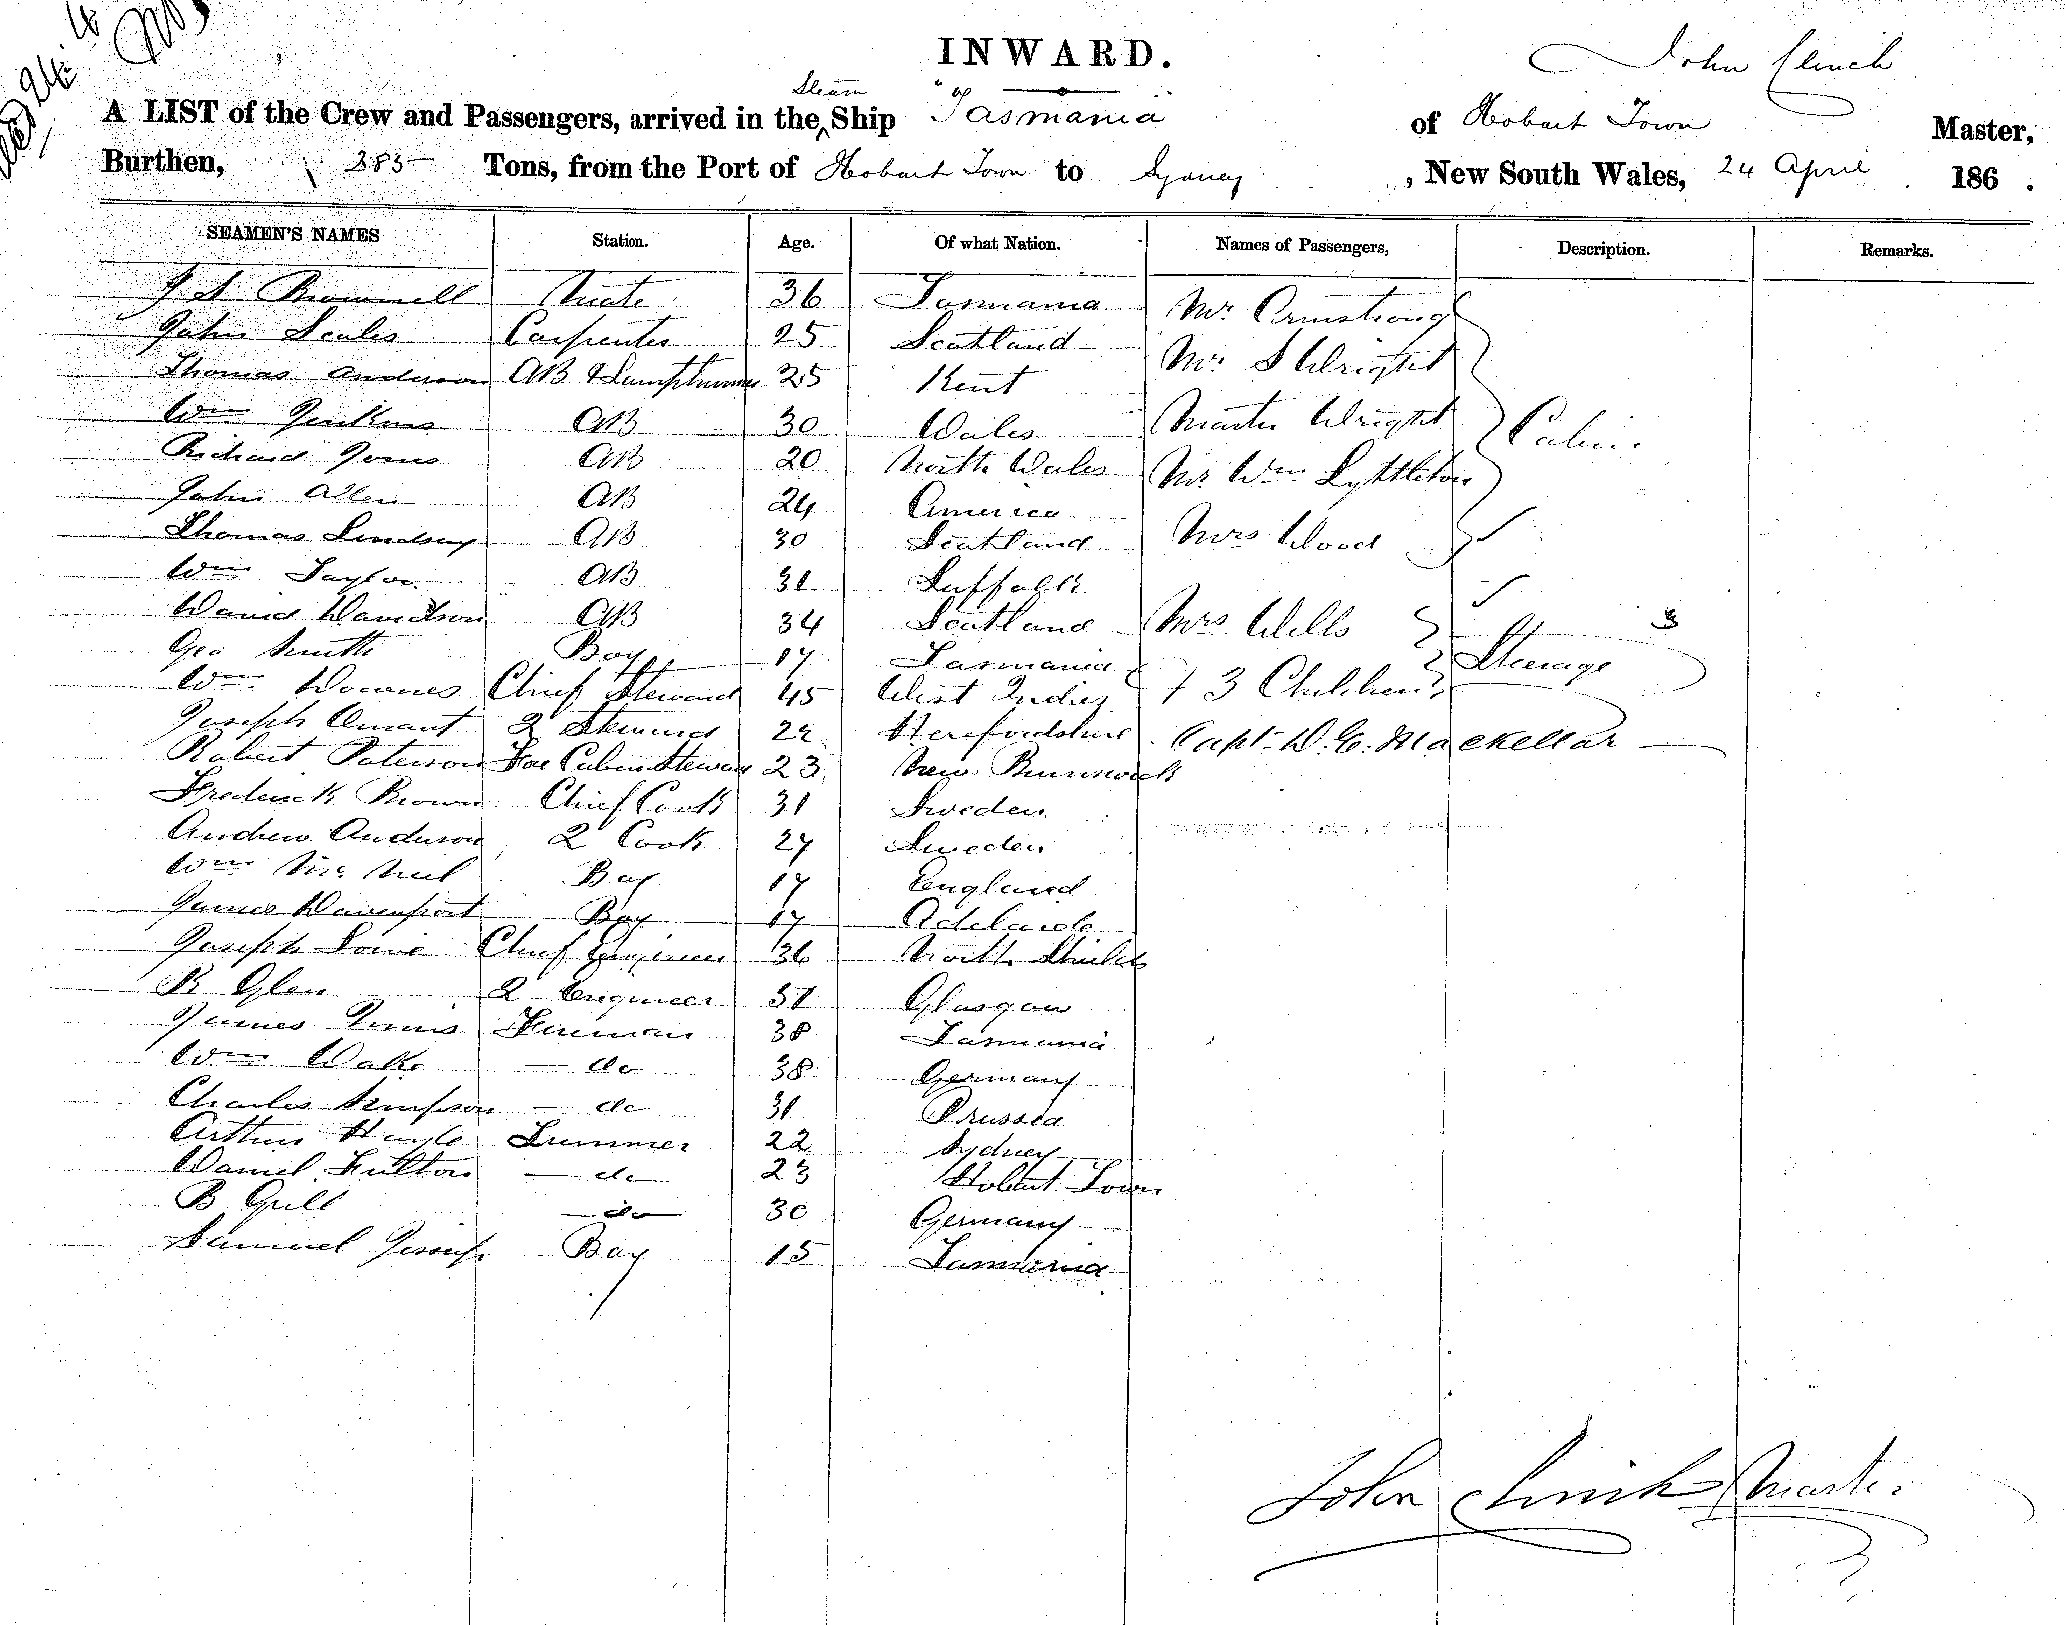 INWARD.
John Clinch
A LIST of the Crew and Passengers, arrived in the Steam Ship "Tasmania" of Hobart Town Master,
Burthen, 285 Tons, from the Port of Hobart Town to Sydney, New South Wales, 24 April 186 .
SEAMEN'S NAMES Station. Age. Of what Nation. Names of Passengers, Description. Remarks.
Brownell Mate 36 Tasmania Mr Armstrong
John Scales Carpenter 25 Scotland Mr S Wright
Thomas Anderson AB & Lamptrimmer 25 Kent
Wm Jenkins AB 30 Wales Master Wright Cabin.
Richard Jones AB 20 North Wales Mr Wm Lyttleton
John Allen AB 24 America
Thomas Lindsay AB 30 Scotland Mrs Wood
Wm Taylor AB 31 Suffolk
David Davidson AB 34 Scotland Mrs Wells 3
Geo Smith Boy 17 Tasmania Steerage
Wm Downes Chief Steward 45 West Indies + 3 Children
Joseph 2 Steward 22 Herefordshire Capt. D. C. Mackellar
Robert Paterson Fore Cabin Steward 23 New Brunswick
Frederick Brown Chief Cook 31 Sweden
Andrew Anderson 2 Cook 27 Sweden
Wm Mc Neil Boy 17 England
James Davenport Boy 17 Adelaide
Joseph Chief Engineer 36 North Shields
R Glen 2 Engineer 31 Glasgow
James Fireman 38 Tasmania
Wm do 38 Germany
Charles Simpson do 31 Prussia
Arthur Trimmer 22 Sydney
Daniel Fulton do 23 Hobart Town
B Gill do 30 Germany
Samuel Jessup Boy 15 Tasmania
John Clinch Master.